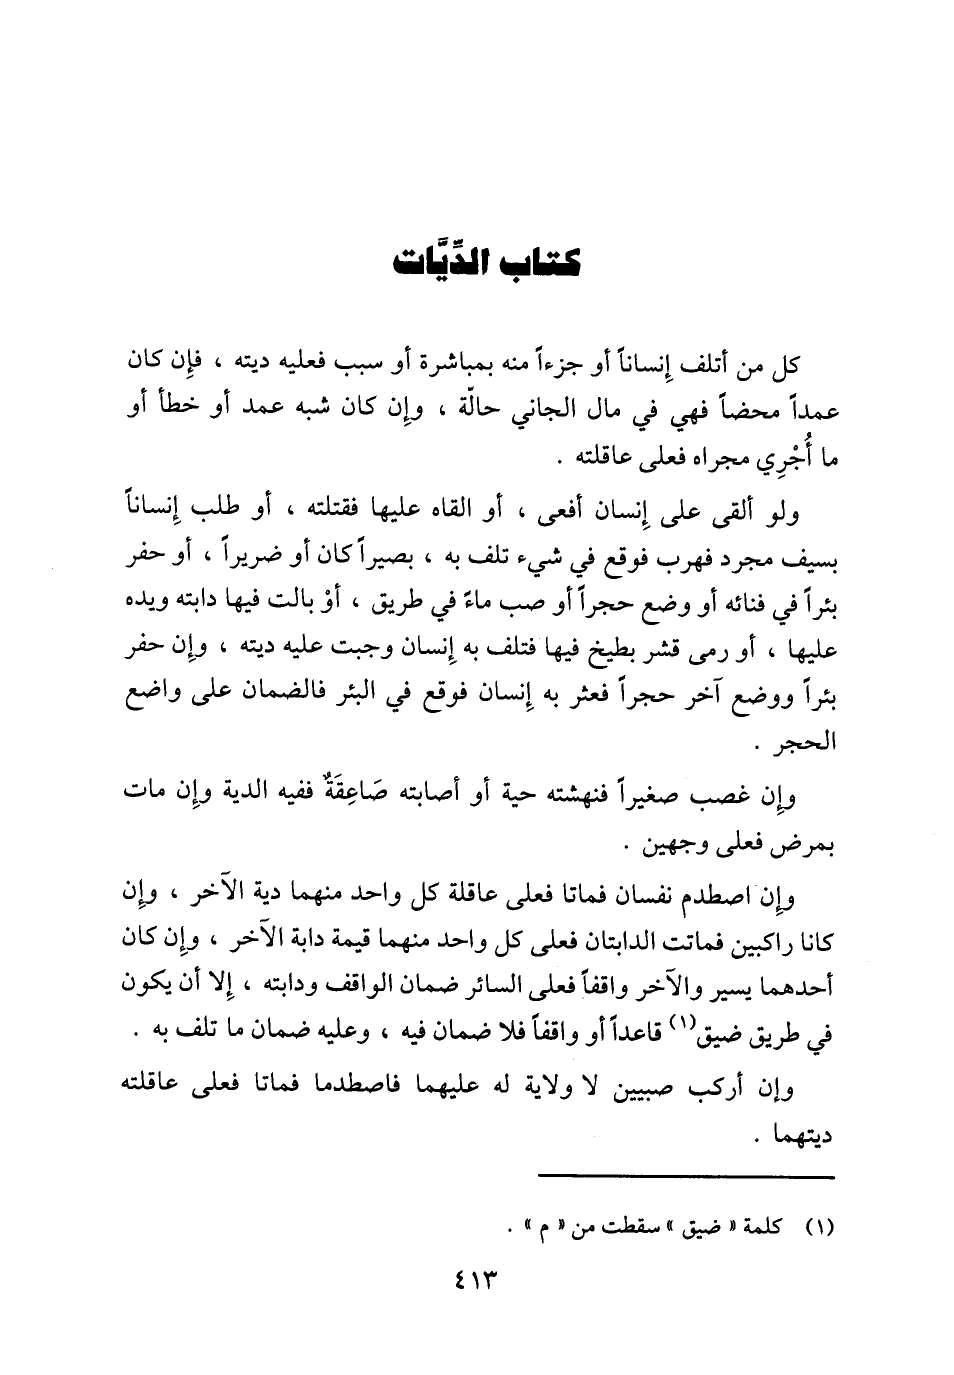 كتاب الدِّيَّات
كل من أتلف إنساناً أو جزءاً منه بمباشرة أو سبب فعليه ديته ، فإن كان
عمداً محضاً فهي في مال الجاني حالّة ، وإن كان شبه عمد أو خطأ أو
ما أُجْرِي مجراه فعلى عاقلته .
ولو ألقى على إنسان أفعى ، أو القاه عليها فقتلته ، أو طلب إنساناً
بسيف مجرد فهرب فوقع في شيء تلف به ، بصيراً كان أو ضريراً ، أو حفر
بئراً في فنائه أو وضع حجراً أو صب ماءً في طريق ، أوْ بالت فيها دابته ويده
عليها ، أو رمى قشر بطيخ فيها فتلف به إنسان وجبت عليه ديته ، وإن حفر
بئراً ووضع آخر حجراً فعثر به إنسان فوقع في البئر فالضمان على واضع
الحجر .
وإن غصب صغيراً فنهشته حية أو أصابته صَاعِقَةٌ ففيه الدية وإن مات
بمرض فعلى وجهين .
وإن اصطدم نفسان فماتا فعلى عاقلة كل واحد منهما دية الآخر ، وإن
كانا راكبين فماتت الدابتان فعلى كل واحد منهما قيمة دابة الآخر ، وإن كان
أحدهما يسير والآخر واقفاً فعلى السائر ضمان الواقف ودابته ، إلا أن يكون
في طريق ضيق(١) قاعداً أو واقفاً فلا ضمان فيه ، وعليه ضمان ما تلف به .
وإن أركب صبيين لا ولاية له عليهما فاصطدما فماتا فعلى عاقلته
ديتهما .
(١) كلمة « ضيق » سقطت من « م » .
٤١٣